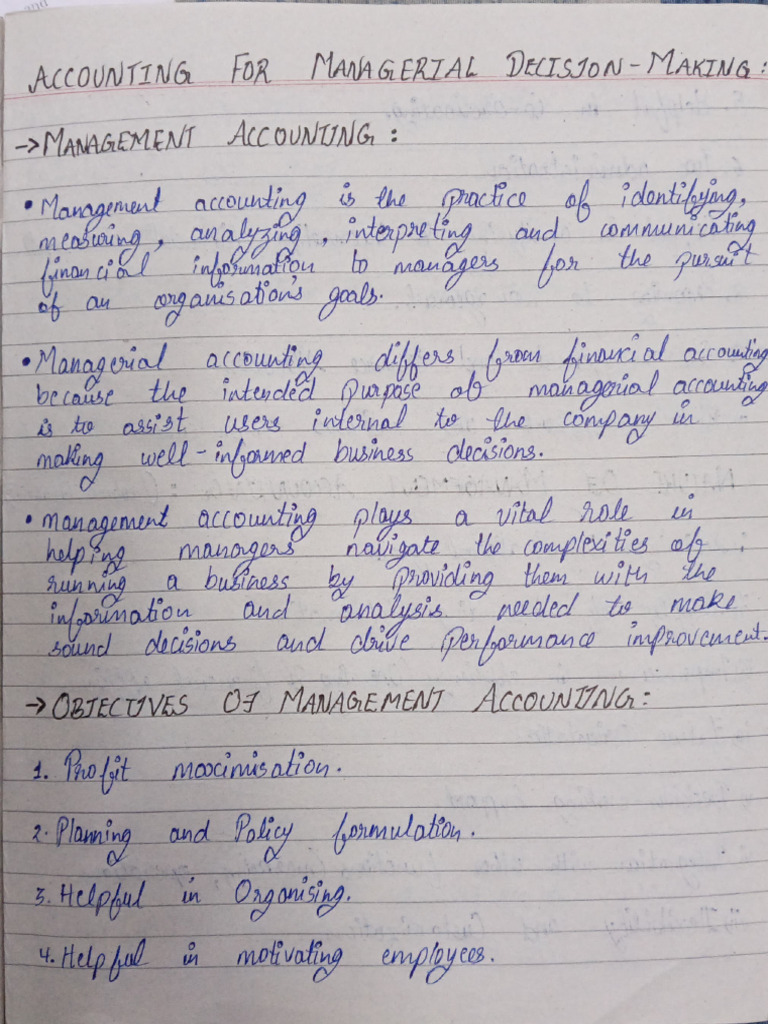 ACCOUNTING FOR MANAGERIAL DECISION-MAKING:
→ MANAGEMENT ACCOUNTING:
• Management accounting is the practice of identifying,
measuring, analyzing, interpreting and communicating
financial information to managers for the pursuit
of an organisation's goals.
• Managerial accounting differs from financial accounting
because the intended purpose of managerial accounting
is to assist users internal to the company in
making well-informed business decisions.
• Management accounting plays a vital role in
helping managers navigate the complexities of
running a business by providing them with the
information and analysis needed to make
sound decisions and drive performance improvement.
→ OBJECTIVES OF MANAGEMENT ACCOUNTING:
1. Profit maximisation.
2. Planning and Policy formulation.
3. Helpful in Organising.
4. Helpful in motivating employees.